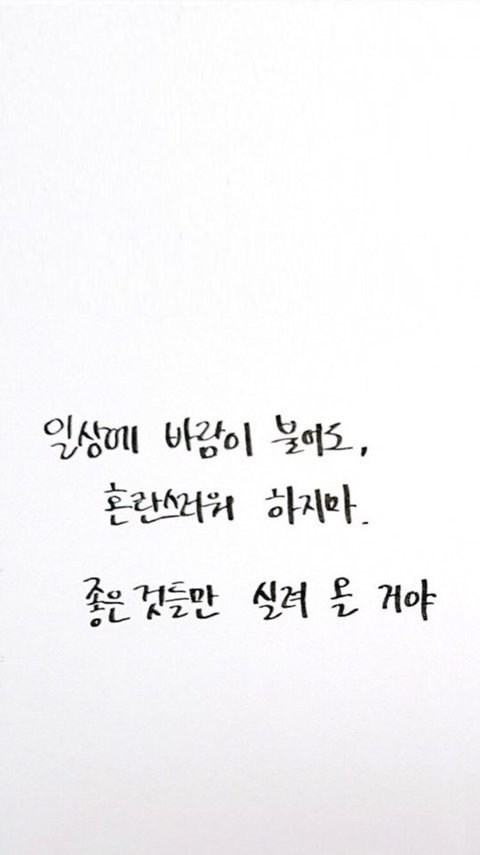 일상에 바람이 불어도,
혼란스러워 하지마.
좋은 것들만 실려 올 거야